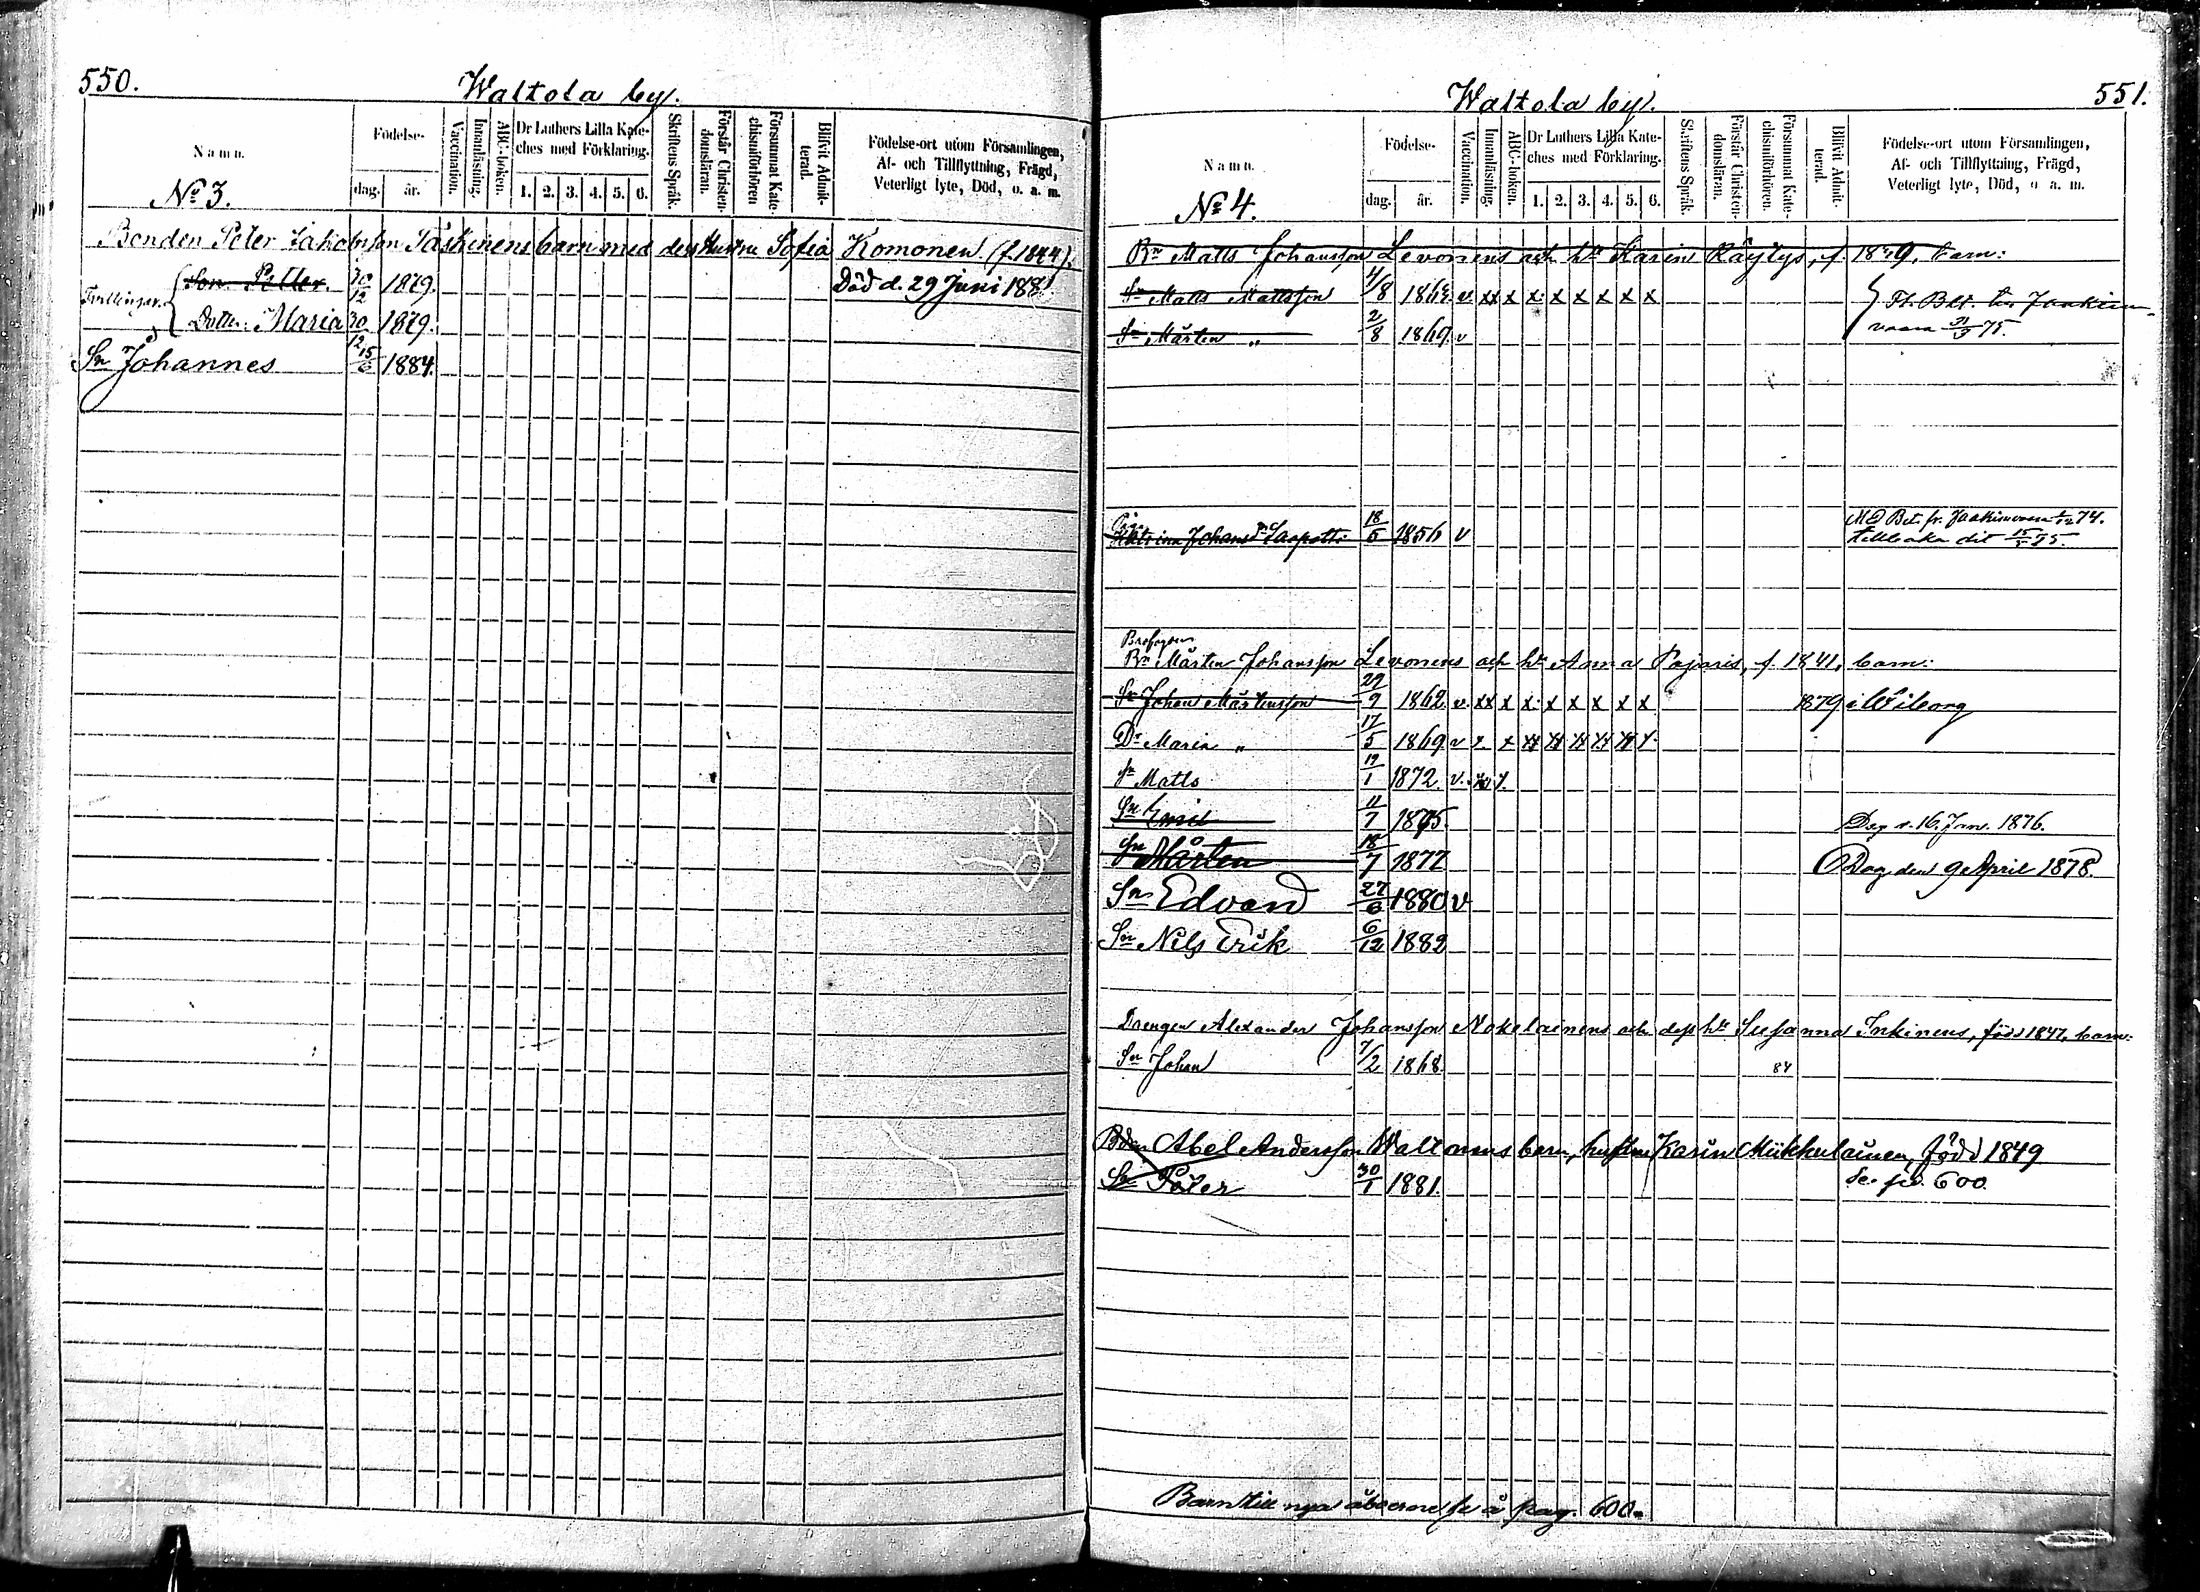 550.
Waltola by.
Namn.
Födelse-
dag. år.
Vaccination.
Innanläsning.
ABC-boken.
Dr Luthers Lilla Kate-
ches med Förklaring.
1. 2. 3. 4. 5. 6.
Skriftens Språk.
Förstår Christen-
domsläran.
Försummat Kate-
chismiförhören
Blifvit Admit-
terad.
Födelse-ort utom Församlingen,
Af- och Tillflyttning, Frägd,
Veterligt lyte, Död, o. a. m.
No 3.
Bonden Peter Jakobsson Täskinens barn med dess hustru Sofia Komonen (f. 1844).
Tvillingar. Son Petter. 30/12 1879. Död d. 29 Juni 188
Dotter Maria 30/12 1879.
Sn Johannes 15/6 1884.
551.
Waltola by.
Namn.
Födelse-
dag. år.
Vaccination.
Innanläsning.
ABC-boken.
Dr Luthers Lilla Kate-
ches med Förklaring.
1. 2. 3. 4. 5. 6.
Skriftens Språk.
Förstår Christen-
domsläran.
Försummat Kate-
chismiförhören.
Blifvit Admit-
terad.
Födelse-ort utom Församlingen,
Af- och Tillflyttning, Frägd,
Veterligt lyte, Död, o a. m.
No 4.
Bn Matts Johansson Levonens och hu Karin Räytys, f. barn:
Sn Matts Mattsson 4/8 v. xx x x x x x x x Fl. Bet. Jaakim-
Sn Mårten " 2/8 1869. v vaara 75.
Katrina Johansdr 18/5 1856 v Bet. fr. Jaakimvaara 74.
tillbaka dit 75.
Bn Mårten Johansson Levonens och hu Anna Pajaris, f. 1841, barn:
Sn Johan Mårtensson 29/9 1862 v. xx x x x x x x x 1879 i Wiborg
Dr Maria " 17/5 1869 v x x xx xx xx xx xx x
Sn Matts 19/1 1872. v.
Sn Emil 11/7 1875. Dog d. 16. Jan. 1876.
Sn Mårten 18/7 1877 Dog den 9 April 1878.
Sn Edvard 27/6 1880 v
Sn Nils Erik 6/12 1882
Drengen Alexander Johansson Nokelainens och dess hu Susanna Inkinens, född 1847, barn:
Sn Johan 7/2 1868. 84
Bden Abel Andersson Waltonens barn, hustru Karin Miikkulainen, född 1849
Sn Peter 30/1 1881. Se. pa. 600.
Barn till nya åboerne se å pag. 600.